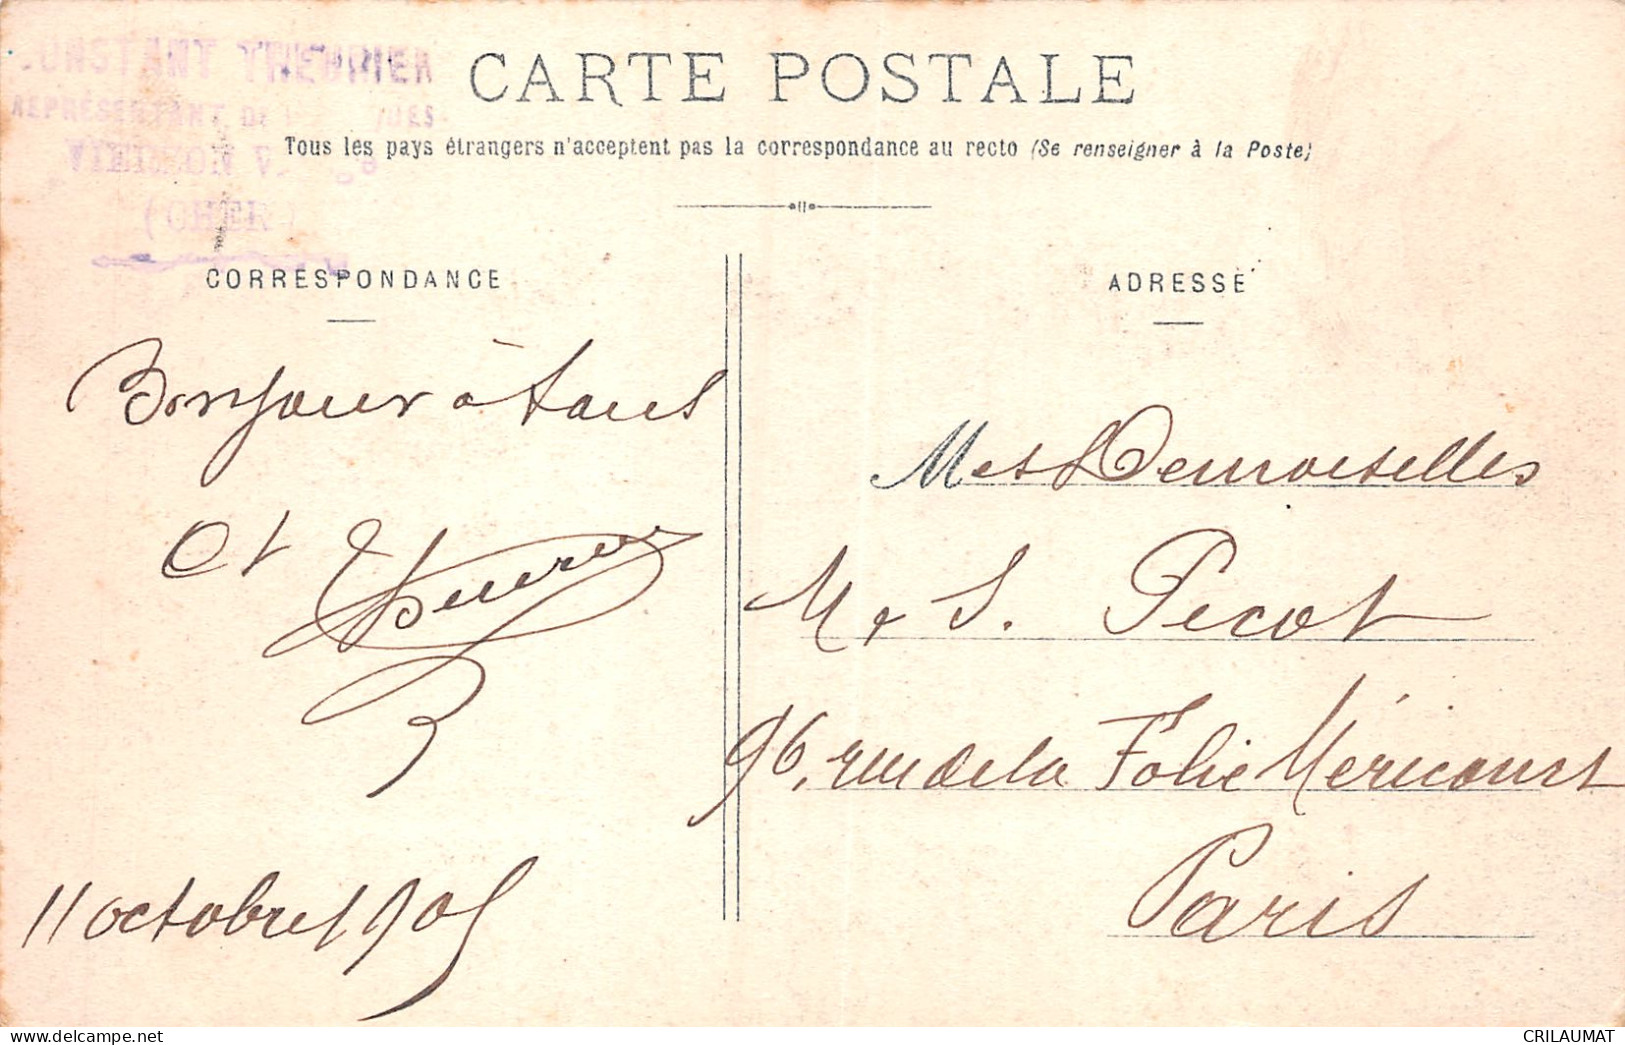 CONSTANT THEURIER
REPRÉSENTANT DE
VIERZON
(CHER)
CARTE POSTALE
Tous les pays étrangers n'acceptent pas la correspondance au recto (Se renseigner à la Poste)
CORRESPONDANCE
Bonjour à tous
Ct Theurier
11 octobre 1905
ADRESSE
Mes Demoiselles
M & S. Pecot
96, rue de la Folie Méricourt
Paris
delcampe.net
CRILAUMAT